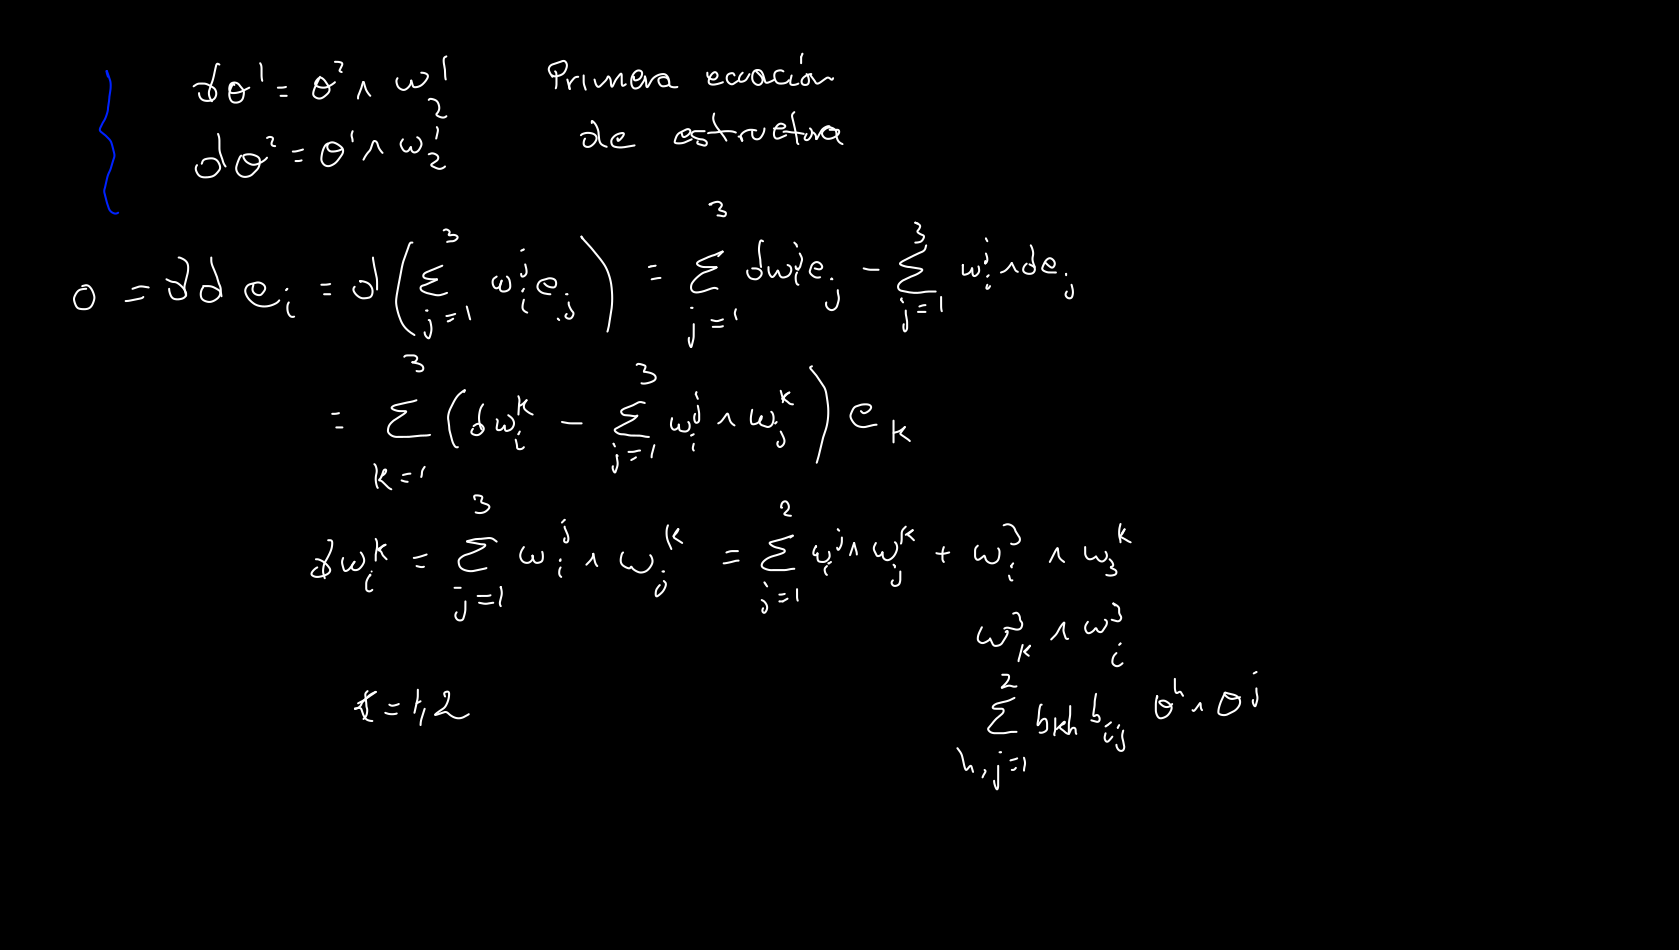 dθ¹ = θ² ∧ ω₂¹ Primera ecuación
dθ² = θ¹ ∧ ω₂¹ de estructura
0 = dd e_i = d( ∑_{j=1}^{3} ω_i^j e_j ) = ∑_{j=1}^{3} dω_i^j e_j − ∑_{j=1}^{3} ω_i^j ∧ de_j
= ∑_{k=1}^{3} ( dω_i^k − ∑_{j=1}^{3} ω_i^j ∧ ω_j^k ) e_k
dω_i^k = ∑_{j=1}^{3} ω_i^j ∧ ω_j^k = ∑_{j=1}^{2} ω_i^j ∧ ω_j^k + ω_i^3 ∧ ω_3^k
ω_k^3 ∧ ω_i^3
= 1, 2 ∑_{h,j=1}^{2} b_{kh} b_{ij} θ^h ∧ θ^j